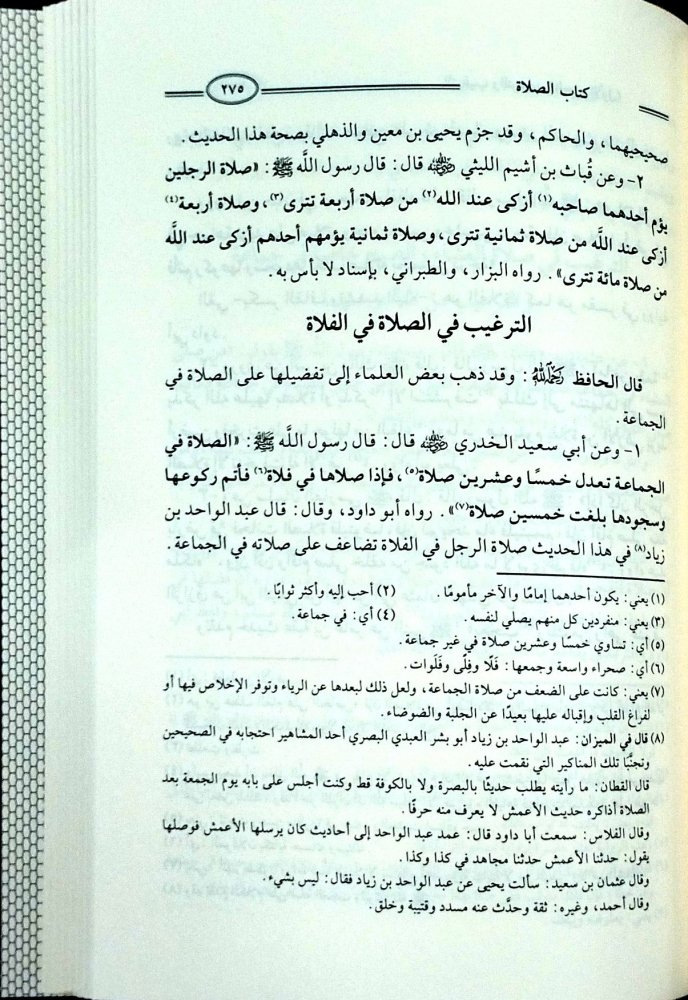 كتاب الصلاة ٢٧٥
صحيحيهما، والحاكم، وقد جزم يحيى بن معين والذهلي بصحة هذا الحديث.
٢- وعن قُباث بن أشيم الليثي رضي الله عنه قال: قال رسول اللَّه ﷺ: «صلاة الرجلين
يؤم أحدهما صاحبه(١) أزكى عند الله(٢) من صلاة أربعة تترى(٣)، وصلاة أربعة(٤)
أزكى عند اللَّه من صلاة ثمانية تترى، وصلاة ثمانية يؤمهم أحدهم أزكى عند اللَّه
من صلاة مائة تترى». رواه البزار، والطبراني، بإسناد لا بأس به.
الترغيب في الصلاة في الفلاة
قال الحافظ رحمه الله: وقد ذهب بعض العلماء إلى تفضيلها على الصلاة في
الجماعة.
١- وعن أبي سعيد الخدري رضي الله عنه قال: قال رسول اللَّه ﷺ: «الصلاة في
الجماعة تعدل خمسًا وعشرين صلاة(٥)، فإذا صلاها في فلاة(٦) فأتم ركوعها
وسجودها بلغت خمسين صلاة(٧)». رواه أبو داود، وقال: قال عبد الواحد بن
زياد(٨) في هذا الحديث صلاة الرجل في الفلاة تضاعف على صلاته في الجماعة.
(١) يعني: يكون أحدهما إمامًا والآخر مأمومًا. (٢) أحب إليه وأكثر ثوابًا.
(٣) يعني: منفردين كل منهم يصلي لنفسه. (٤) أي: في جماعة.
(٥) أي: تساوي خمسًا وعشرين صلاة في غير جماعة.
(٦) أي: صحراء واسعة وجمعها: فَلًا وفِلًى وفَلَوات.
(٧) يعني: كانت على الضعف من صلاة الجماعة، ولعل ذلك لبعدها عن الرياء وتوفر الإخلاص فيها أو
لفراغ القلب وإقباله عليها بعيدًا عن الجلبة والضوضاء.
(٨) قال في الميزان: عبد الواحد بن زياد أبو بشر العبدي البصري أحد المشاهير احتجابه في الصحيحين
وتجنَّبا تلك المناكير التي نقمت عليه.
قال القطان: ما رأيته يطلب حديثًا بالبصرة ولا بالكوفة قط وكنت أجلس على بابه يوم الجمعة بعد
الصلاة أذاكره حديث الأعمش لا يعرف منه حرفًا.
وقال الفلاس: سمعت أبا داود قال: عمد عبد الواحد إلى أحاديث كان يرسلها الأعمش فوصلها
يقول: حدثنا الأعمش حدثنا مجاهد في كذا وكذا.
وقال عثمان بن سعيد: سألت يحيى عن عبد الواحد بن زياد فقال: ليس بشيء.
وقال أحمد، وغيره: ثقة وحدَّث عنه مسدد وقتيبة وخلق.